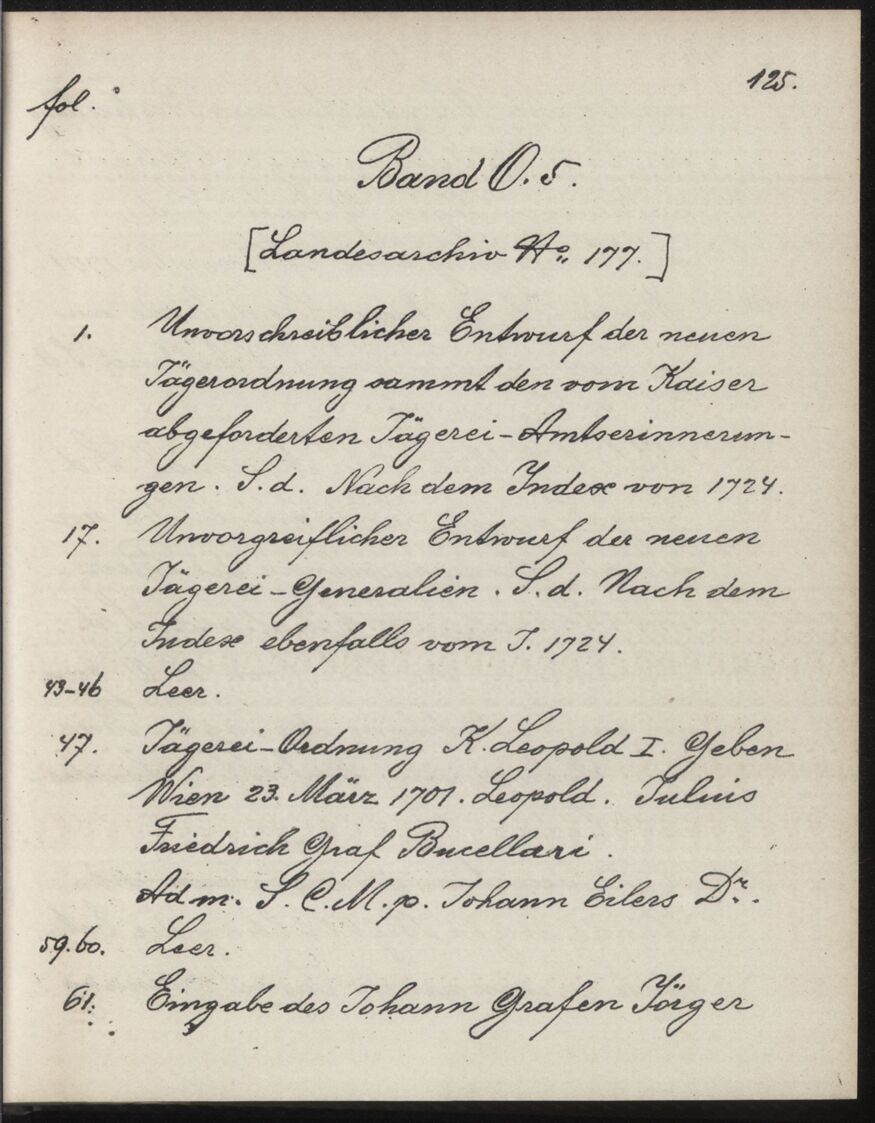 125.
fol.
Band O. 5.
[Landesarchiv No. 177.]
1. Unvorschreiblicher Entwurf der neuen
Jägerordnung sammt den vom Kaiser
abgeforderten Jägerei-Amtserinnerun-
gen. S. d. Nach dem Index von 1724.
17. Unvorgreiflicher Entwurf der neuen
Jägerei-Generalien. S. d. Nach dem
Index ebenfalls vom J. 1724.
43-46 Leer.
47. Jägerei-Ordnung K. Leopold I. Geben
Wien 23. März 1701. Leopold. Julius
Friedrich Graf Bucellari.
Ad m. S. C. M. p. Johann Eilers Dr.
59.60. Leer.
61. Eingabe des Johann Grafen Jörger